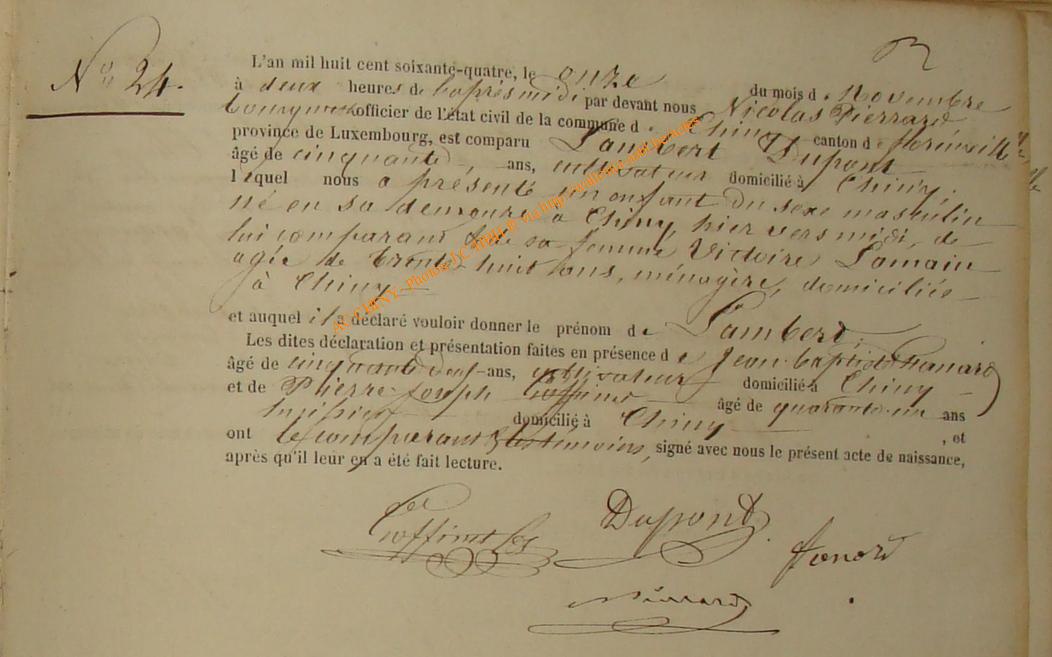 N° 24.
L'an mil huit cent soixante-quatre, le onze du mois de Novembre
à deux heures de l'après midi par devant nous Nicolas Pierrard
bourgmestre officier de l'état civil de la commune de Chiny canton de Florenville
province de Luxembourg, est comparu Lambert Dupont
âgé de cinquante ans, cultivateur domicilié à Chiny,
lequel nous a présenté un enfant du sexe masculin
né en sa demeure à Chiny, hier vers midi, de
lui comparant & de sa femme Victoire Lamain
agée de trente-huit ans, ménagère, domiciliée
à Chiny
et auquel il a déclaré vouloir donner le prénom de Lambert,
Les dites déclaration et présentation faites en présence de Jean-Baptiste
âgé de cinquante ans, cultivateur domicilié à Chiny
et de Pierre-Joseph Goffinet âgé de quarante-un ans
domicilié à Chiny , et
ont le comparant & les témoins, signé avec nous le présent acte de naissance,
après qu'il leur en a été fait lecture.
Dupont
Goffinet
Pierrard